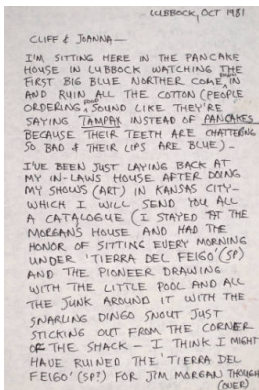 LUBBOCK, OCT 1981
CLIFF & JOANNA—
I'M SITTING HERE IN THE PANCAKE
HOUSE IN LUBBOCK WATCHING THE
FIRST BIG BLUE NORTHER COME DOWN IN
AND RUIN ALL THE COTTON (PEOPLE
ORDERING FOOD SOUND LIKE THEY'RE
SAYING TAMPAX INSTEAD OF PANCAKES
BECAUSE THEIR TEETH ARE CHATTERING
SO BAD & THEIR LIPS ARE BLUE) —
I'VE BEEN JUST LAYING BACK AT
MY IN-LAWS HOUSE AFTER DOING
MY SHOWS (ART) IN KANSAS CITY—
WHICH I WILL SEND YOU ALL
A CATALOGUE (I STAYED AT THE
MORGANS HOUSE AND HAD THE
HONOR OF SITTING EVERY MORNING
UNDER 'TIERRA DEL FEIGO' (SP)
AND THE PIONEER DRAWING
WITH THE LITTLE POOL AND ALL
THE JUNK AROUND IT WITH THE
SNARLING DINGO SNOUT JUST
STICKING OUT FROM THE CORNER
OF THE SHACK — I THINK I MIGHT
HAVE RUINED THE 'TIERRA DEL
FEIGO' (SP?) FOR JIM MORGAN THOUGH
(OVER)